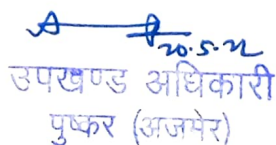 20.5.22
उपखण्ड अधिकारी
पुष्कर (अजमेर)